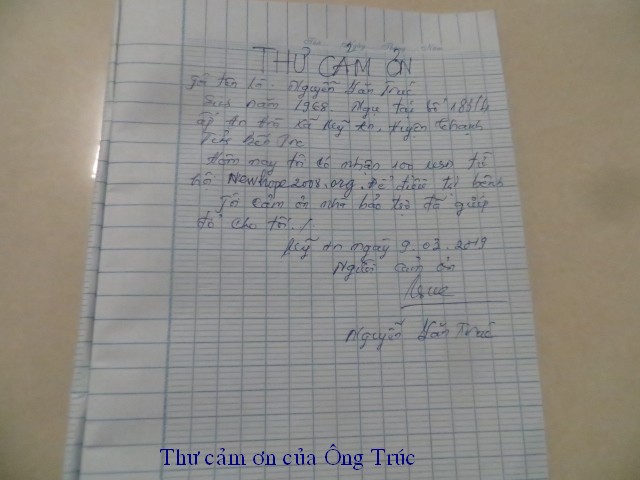 THƯ CẢM ƠN
Tô tên là: Nguyễn Văn Trúc
Sinh năm 1968. Ngụ tại tổ 18
ấp An xã Mỹ An, Huyện Thạnh
Tỉnh Bến Tre
Hôm nay tôi có nhận 100 USD từ
hội Newhope2008.org. để điều trị bệnh
Tôi cảm ơn nhà bảo trợ đã giúp
đỡ cho tôi./
Mỹ An ngày 9.03.2019
Người cảm ơn
Nguyễn Văn Trúc
Thư cảm ơn của Ông Trúc